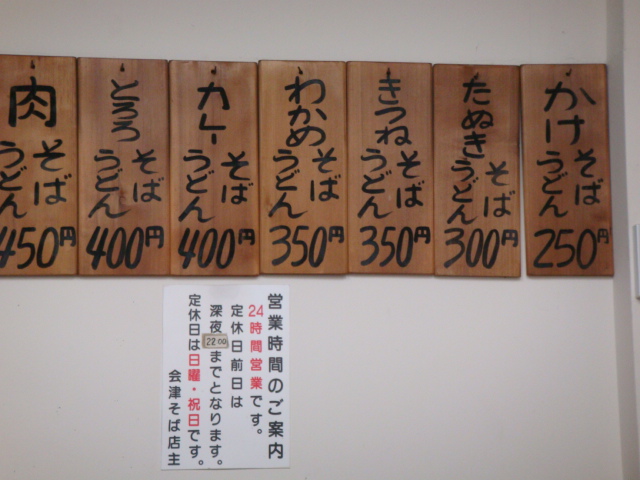 かけそばうどん250円
たぬきそばうどん300円
きつねそばうどん350円
わかめそばうどん350円
カレーそばうどん400円
とろろそばうどん400円
肉そばうどん450円
営業時間のご案内
24時間営業です。
定休日前日は
深夜22:00までとなります。
定休日は日曜・祝日です。
会津そば店主